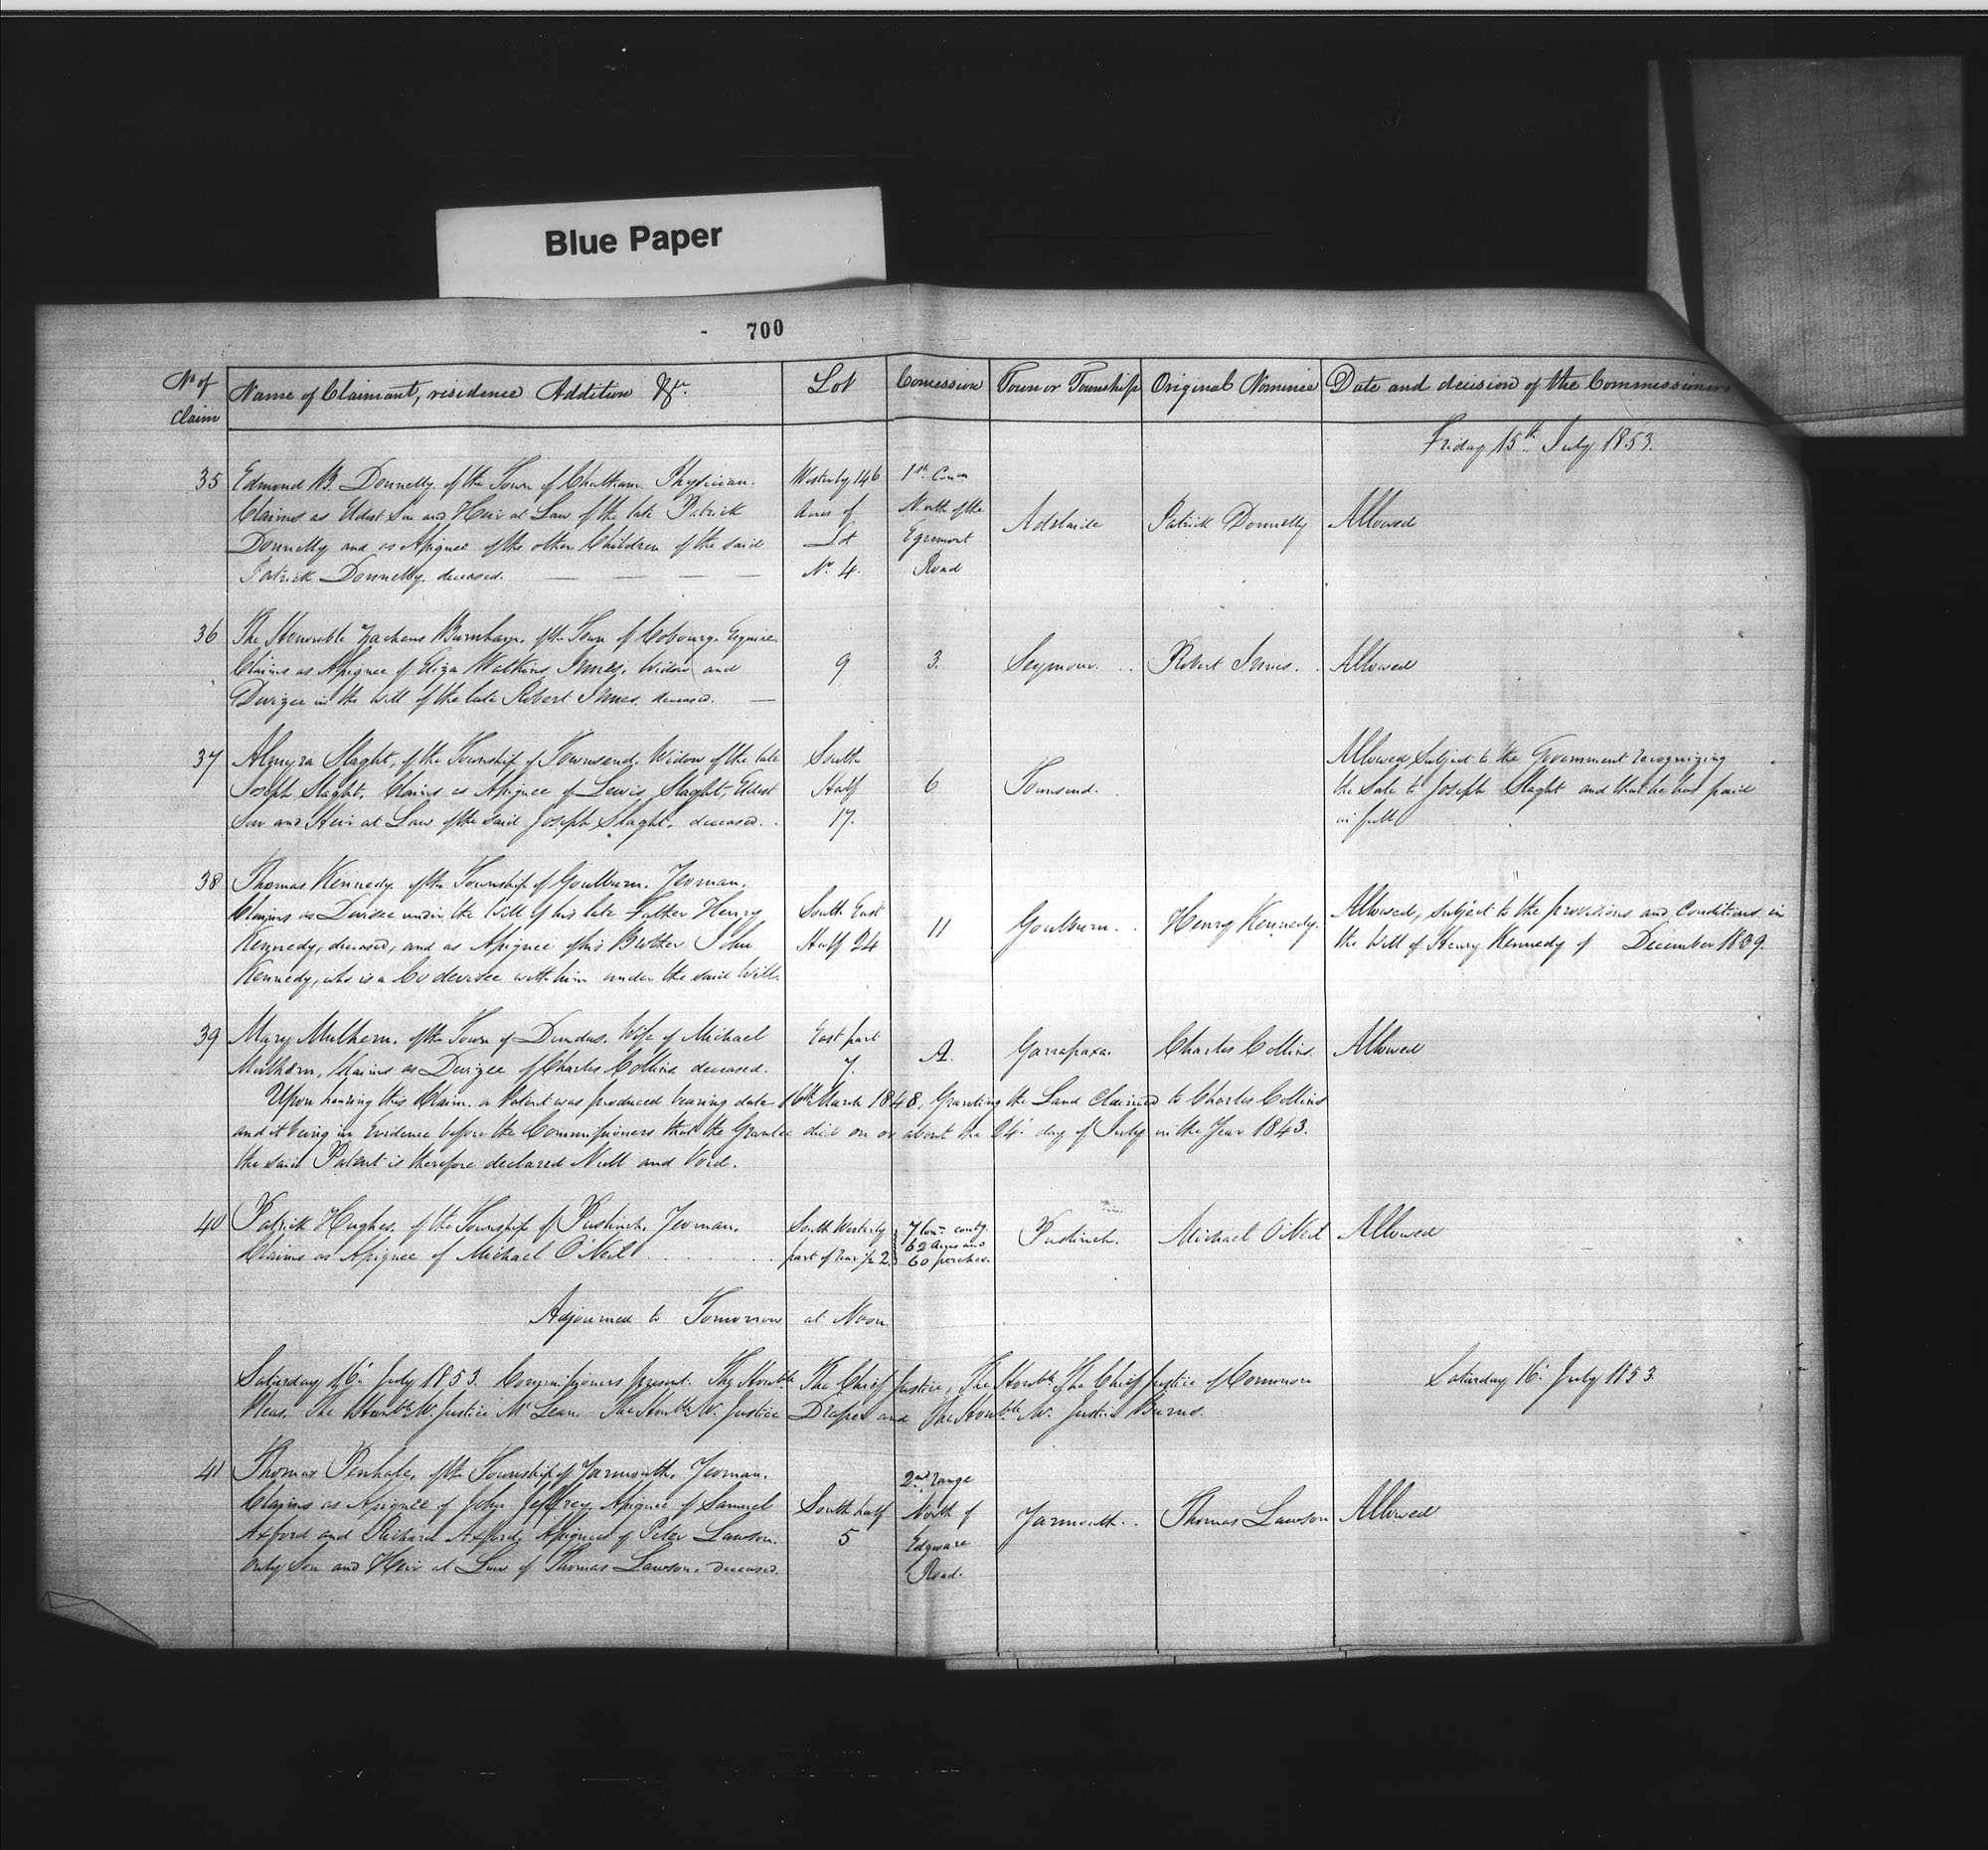 Blue Paper
700
No of Claim
Name of Claimant, residence Addition &c.
Lot
Concession
Town or Township
Original Nominee
Date and decision of the Commissioners
Friday 15th July 1853.
35
Edmond B. Donnelly of the Town of Chatham. Physician.
Claims as Eldest Son and Heir at Law of the late Patrick
Donnelly and as Assignee of the other Children of the said
Patrick Donnelly deceased.
Westerly 146
Acres of
Lot
No 4.
1st Con
North of the
Egremont
Road
Adelaide
Patrick Donnelly
Allowed
36
The Honorable Zacheus Burnham, of the Town of Cobourg. Esquire
Claims as Assignee of Eliza Watkins Innes, Widow and
Devizee in the Will of the late Robert Innes, deceased.
9
3.
Seymour.
Robert Innes.
Allowed
37
Almyra Slaght, of the Township of Townsend, Widow of the late
Joseph Slaght, Claims as Assignee of Lewis Slaght, Eldest
Son and Heir at Law of the said Joseph Slaght, deceased.
South
Half
17.
6
Townsend.
Allowed, Subject to the Government recognizing
the Sale to Joseph Slaght and that he has paid
in full
38
Thomas Kennedy of the Township of Goulburn. Yeoman.
Claims as Devisee under the Will of his late Father Henry
Kennedy, deceased, and as Assignee of his Brother John
Kennedy, who is a Co devisee with him under the said Will.
South East
Half 24
11
Goulburn.
Henry Kennedy.
Allowed, subject to the provisions and Conditions in
the Will of Henry Kennedy of December 1839.
39
Mary Mulhern. of the Town of Dundas. Wife of Michael
Mulhern, Claims as Devizee of Charles Collins deceased.
East part
7.
A.
Garrafraxa.
Charles Collins.
Allowed
Upon hearing this Claim. a Patent was produced bearing date 16th March 1848, Granting the Land Claimed to Charles Collins
and it being in Evidence before the Commissioners that the Grantee died on or about the 24th day of July in the Year 1843.
the said Patent is therefore declared Null and Void.
40
Patrick Hughes. of the Township of Puslinch. Yeoman.
Claims as Assignee of Michael O'Neil
South Westerly
part of rear ½ 2.
7 Con. contg.
62 Acres and
60 perches.
Puslinch.
Michael O'Neil
Allowed
Adjourned to Tomorrow at Noon.
Saturday 16th July 1853. Commissioners present. The Honble The Chief Justice, The Honble The Chief Justice of Common
Pleas. The Honble Mr. Justice McLean The Honble Mr. Justice Draper and The Honble Mr. Justice Burns.
Saturday 16th July 1853.
41
Thomas Penhale, of the Township of Yarmouth, Yeoman.
Claims as Assignee of John Jeffrey, Assignee of Samuel
Axford and Richard Axford, Assignees of Peter Lawson.
only Son and Heir at Law of Thomas Lawson, deceased.
South half
5
2nd range
North of
Edgware
Road.
Yarmouth.
Thomas Lawson
Allowed